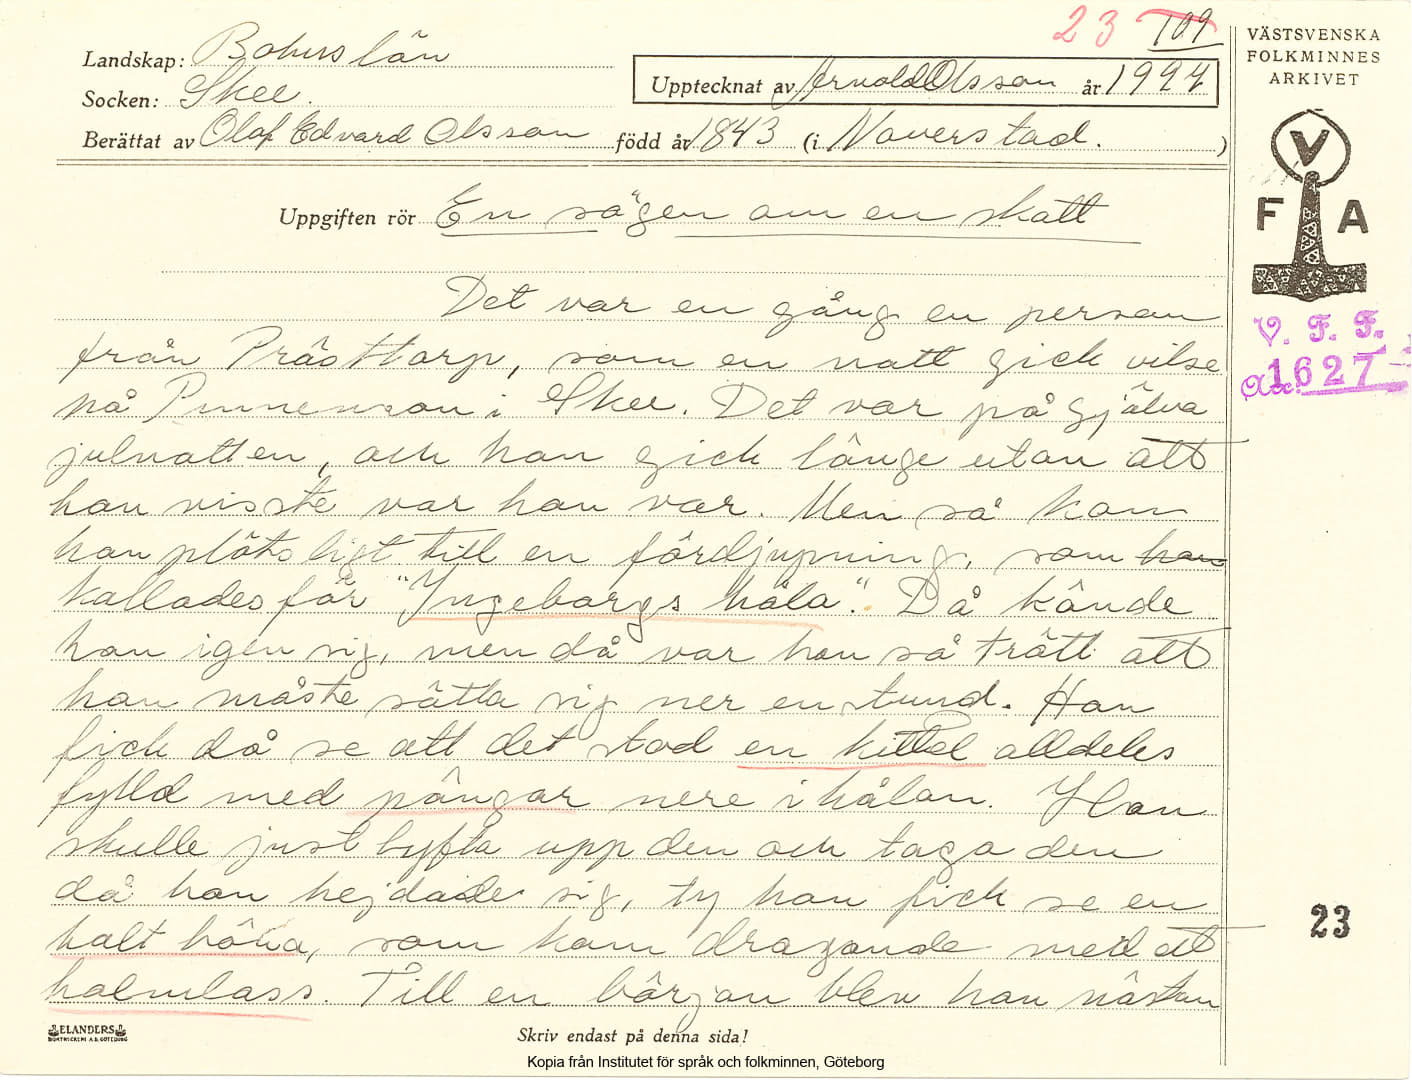 23 109
Landskap: Bohuslän
Socken: Skee.
Upptecknat av Arnold Olsson år 1927
Berättat av Olof Edvard Olsson född år 1843 (i Naverstad.)
VÄSTSVENSKA
FOLKMINNES
ARKIVET
V
F A
V. F. F.
Acc. 1627
Uppgiften rör En sägen om en skatt
Det var en gång en person
från Prästtorp, som en natt gick vilse
på i Skee. Det var på själva
julnatten, och han gick länge utan att
han visste var han var. Men så kom
han plötsligt till en fördjupning, som han
kallades för "Ingeborgs håla". Då kände
han igen sig, men då var han så trött att
han måste sätta sig ner en stund. Han
fick då se att det stod en kittel alldeles
fylld med pängar nere i hålan. Han
skulle just lyfta upp den och taga den
då han hejdade sig, ty han fick se en
halt höna, som kom dragande med ett
halmlass. Till en början blev han nästan
23
ELANDERS
BOKTRYCKERI A.B. GÖTEBORG
Skriv endast på denna sida!
Kopia från Institutet för språk och folkminnen, Göteborg